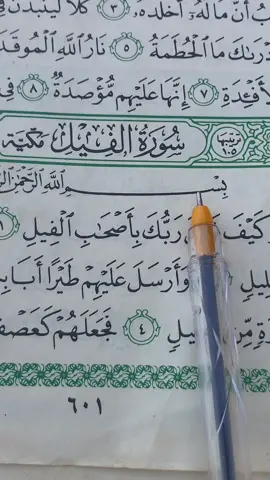 بُ أَنَّ مَالَهُۥٓ أَخْلَدَهُۥ ٣ كَلَّا لَيُنۢبَذَنَّ فِي
دْرَىٰكَ مَا ٱلْحُطَمَةُ ٥ نَارُ ٱللَّهِ ٱلْمُوقَدَ
لْأَفْـِٔدَةِ ٧ إِنَّهَا عَلَيْهِم مُّؤْصَدَةٌ ٨ فِي
ترتيبها ١٠٥ سُورَةُ الفِيلِ مَكِّيَّة
بِسْمِ ٱللَّهِ ٱلرَّحْمَٰنِ
كَيْفَ رَبُّكَ بِأَصْحَٰبِ ٱلْفِيلِ ١
لِيلٍ وَأَرْسَلَ عَلَيْهِمْ طَيْرًا أَبَابِ
ةٍ مِّن يلٍ ٤ فَجَعَلَهُمْ كَعَصْفٍ
٦٠١